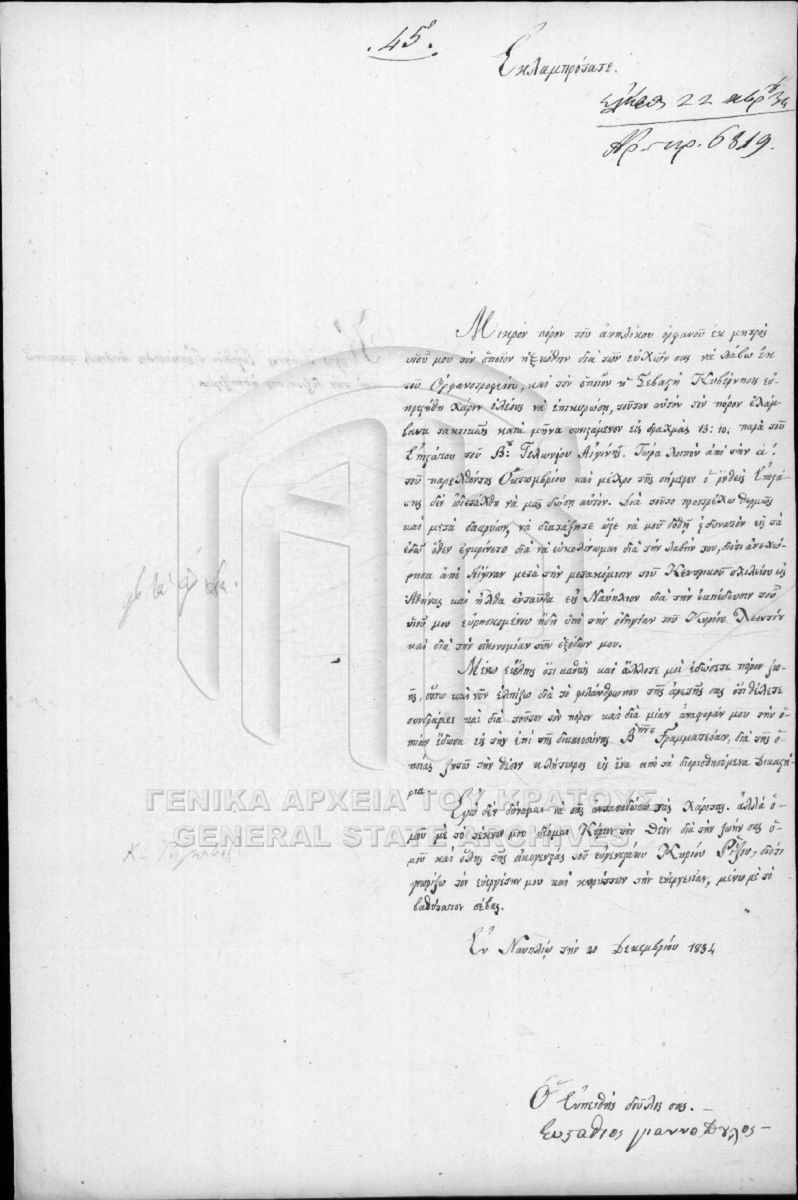 45.
Ἐκλαμπρότατε.
22
Ἀρ. πρ. 6819.
Μικρὸν πόρον τοῦ ἀνηλίκου ὀρφανοῦ ἐκ μητρὸς
υἱοῦ μου τὸν ὁποῖον ἠξιώθην διὰ τῶν εὐχῶν σας νὰ λάβω ἐκ
τοῦ Ὀρφανοτροφείου, καὶ τὸν ὁποῖον ἡ Σεβαστὴ Κυβέρνησις εὐ-
ηρεστήθη χάριν ἐλέους νὰ ἐπικυρώσῃ, τοῦτον αὐτὸν τὸν πόρον ἐλάμ-
βανα τακτικῶς κατὰ μῆνα συνιστάμενον εἰς δραχμὰς 13:10. παρὰ τοῦ
Ἐπιστάτου τοῦ Β: Τελωνείου Αἰγίνης. Τώρα λοιπὸν ἀπὸ τὴν α:
τοῦ παρελθόντος Ὀκτωμβρίου καὶ μέχρι τῆς σήμερον ὁ ῥηθεὶς Ἐπιστά-
της δὲν νὰ μᾶς δώσῃ αὐτόν. Διὰ τοῦτο προστρέχω θερμῶς
καὶ μετὰ δακρύων νὰ διατάξητε ὥστε νὰ μοῦ δοθῇ εἰ δυνατὸν εἰς τὰ
ἐδῶ ὅθεν ἐγκρίνετε διὰ νὰ εὐκολύνωμαι διὰ τὴν λαβήν του, διότι ἀνεχώ-
ρησα ἀπὸ Αἴγιναν μετὰ τὴν μετακόμισιν τοῦ Κεντρικοῦ σχολείου εἰς
Ἀθήνας καὶ ἦλθα ἐνταῦθα εἰς Ναύπλιον διὰ τὴν ἐκπαίδευσιν τοῦ
υἱοῦ μου εὑρισκομένου ἤδη ὑπὸ τὴν ὁδηγίαν τοῦ Κυρίου
καὶ διὰ τὴν οἰκονομίαν τῶν ἐξόδων μου.
Μένω εὔελπις ὅτι καθὼς καὶ ἄλλοτε μοὶ ἐδώσετε πόρον ζω-
ῆς, οὕτω καὶ νῦν ἐλπίζω διὰ τὸ φιλάνθρωπον τῆς ἀρετῆς σας ὅτι θέλετε
συνδράμει καὶ διὰ τοῦτον τὸν πόρον καὶ διὰ μίαν ἀναφοράν μου τὴν ὁ-
ποίαν ἔδωσα εἰς τὴν ἐπὶ τῆς δικαιοσύνης Γραμματείαν, διὰ τῆς ὁ-
ποίας ζητῶ τὴν θέσιν κλήτορος εἰς ἕνα ἀπὸ τὰ διορισθησόμενα Δικαστή-
ρια.
Ἐγὼ δὲν δύναμαι νὰ σᾶς ἀνταποδώσω τὰς χάριτας. ἀλλὰ ὁ-
μοῦ μὲ τὸ τέκνον μου δέομαι Κύριον τὸν Θεὸν διὰ τὴν ζωήν σας ὁ-
μοῦ καὶ ὅλης τῆς οἰκογενείας τοῦ εὐγενεστάτου Κυρίου Ῥίζου, διότι
γνωρίζω τὸν εὐεργέτην μου καὶ κηρύττων τὴν εὐεργεσίαν, μένω μὲ τὸ
βαθύτατον σέβας.
Ἐν Ναυπλίῳ τὴν 20 Δεκεμβρίου 1834
Ὁ Εὐπειθὴς δοῦλος σας. —
Ευσταθιος γιαννοπουλος —
ΓΕΝΙΚΑ ΑΡΧΕΙΑ ΤΟΥ ΚΡΑΤΟΥΣ
GENERAL STATE ARCHIVES